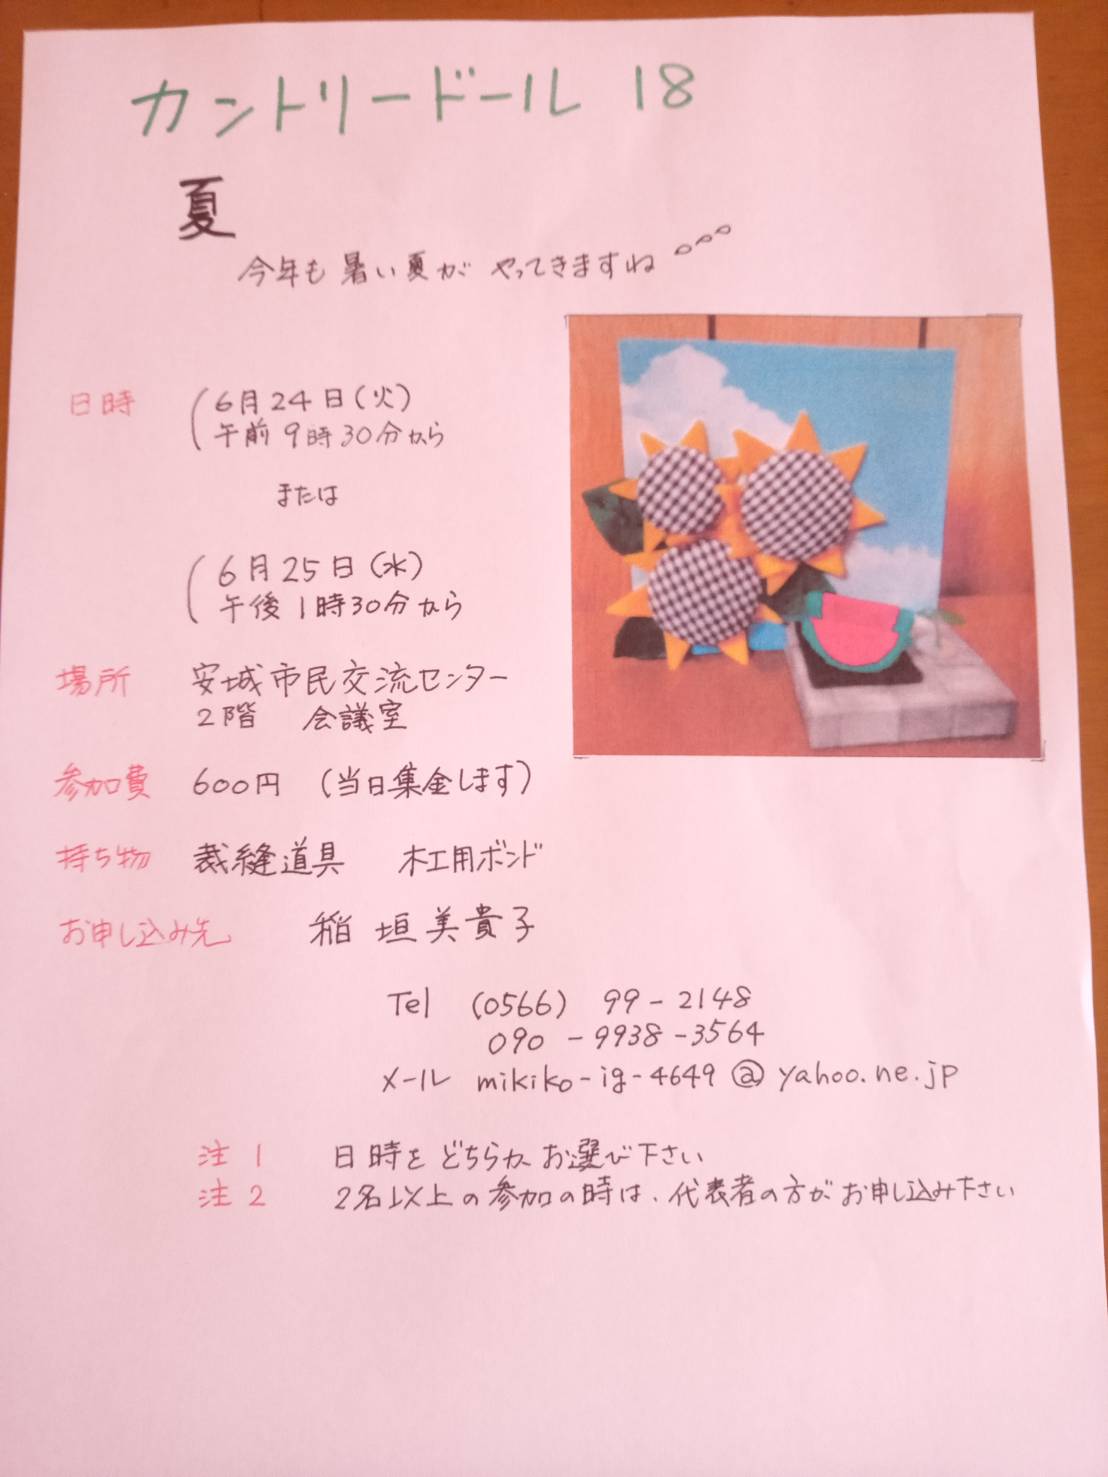 カントリードール 18
夏
今年も暑い夏がやってきますね
日時 6月24日(火)
午前9時30分から
または
6月25日(水)
午後1時30分から
場所 安城市民交流センター
2階 会議室
参加費 600円 (当日集金します)
持ち物 裁縫道具 木工用ボンド
お申し込み先 稲垣美貴子
Tel (0566) 99-2148
090-9938-3564
メール mikiko-ig-4649@yahoo.ne.jp
注1 日時をどちらかお選び下さい
注2 2名以上の参加の時は、代表者の方がお申し込み下さい